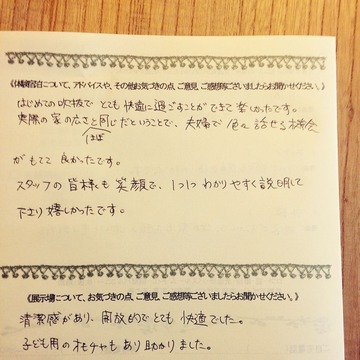 《体験宿泊について、アドバイスや、その他お気づきの点、ご意見、ご感想等ございましたらお聞かせください。》
はじめての吹抜で とても 快適に過ごすことができて楽しかったです。
実際の家の広さと同じだということで、夫婦で 色々 話せる機会
ほぼ
がもてて 良かったです。
スタッフの 皆様も 笑顔で、1つ1つ わかりやすく説明して
下さり嬉しかったです。
《展示場について、お気づきの点、ご意見、ご感想等ございましたらお聞かせください。》
清潔感があり、開放的でとても 快適でした。
子ども用のオモチャもあり助かりました。